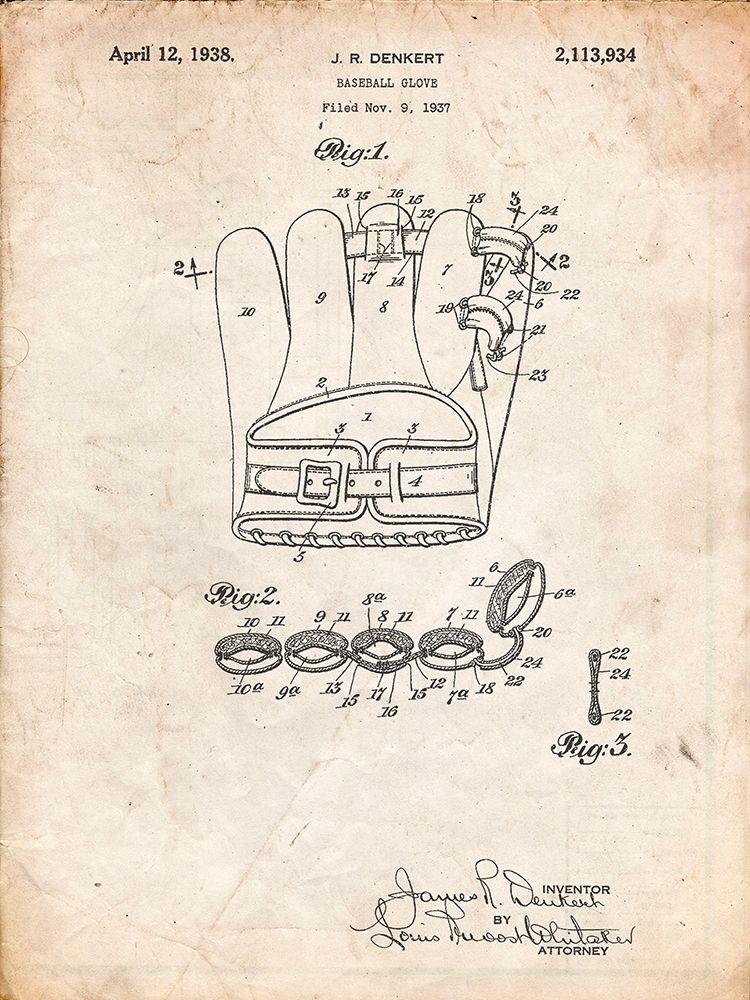 April 12, 1938.
J. R. DENKERT
2,113,934
BASEBALL GLOVE
Filed Nov. 9, 1937
Fig:1.
13 15 16 15 12 18 3 24 20
2 2
17 14 7 3 20 22
10 9 8 19 24 6 21
23
2
1
3 3
4
5
Fig:2.
10 11 9 11 8a 8 11 7 11 6 11 6a
20
10a 9a 13 15 17 16 15 12 7a 18 22 24
22
24
22
Fig:3.
James R. Denkert
INVENTOR
BY
Louis Prevost Whitaker
ATTORNEY